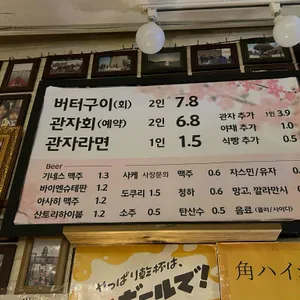 버터구이(회) 2인 7.8
관자회(예약) 2인 6.8
관자라면 1인 1.5
관자 추가 1인 3.9
야채 추가 1.0
식빵 추가 0.5
Beer
기네스 맥주 1.3
바이엔슈테판 1.2
아사히 맥주 1.2
산토리하이볼 1.0
사케 사장문의
도쿠리 1.5
소주 0.5
맥주 0.6
청하 0.6
탄산수 0.5
자스민/유자
망고, 깔라만시
음료 (콜라/사이다)
やっぱり乾杯は、
ボールで!
角ハイ